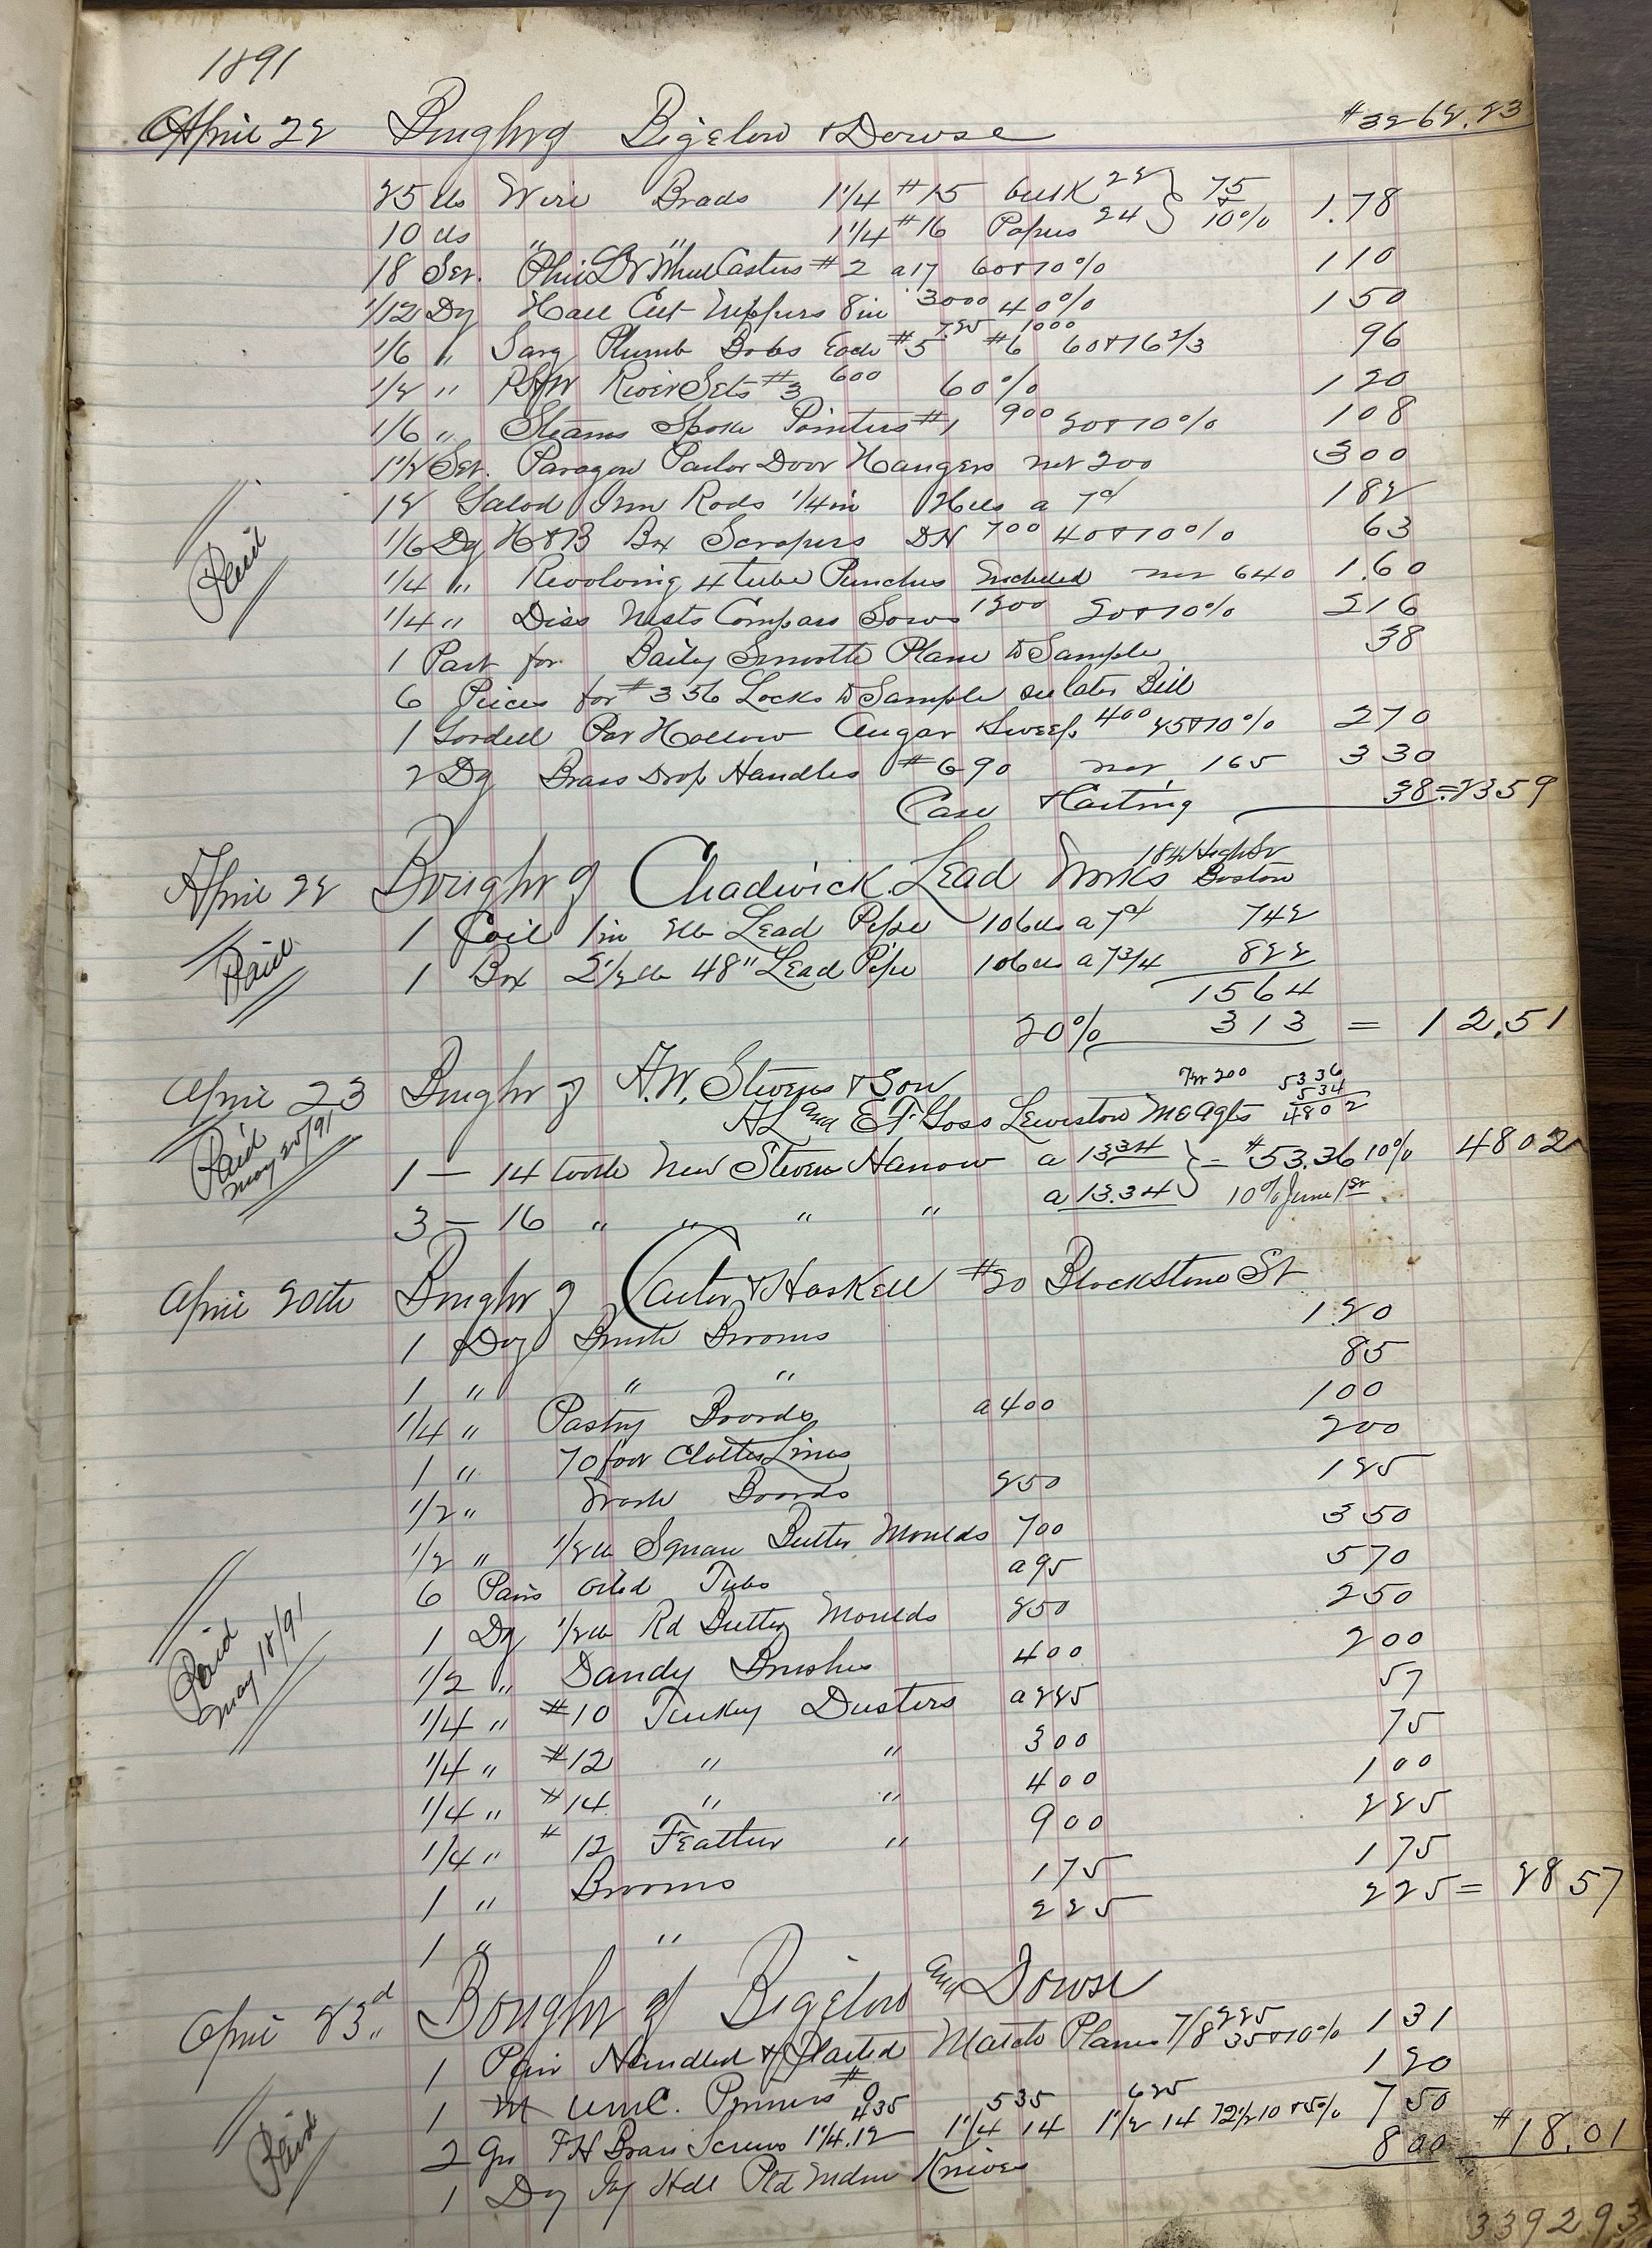 1891
April 22 Bought of Bigelow & Dowse #3262.23
25 lbs Wire Brads 1 1/4 #15 bulk 22 } 75
10 lbs " " 1 1/4 #16 Papers 24 } & 10% 1.78
18 Set. Phil Wheel Casters #2 a 17 60&10% 110
1/12 Dz Hall Cut Nippers 8 in 3000 40% 150
1/6 " Sarg Plumb Bobs Each #5 725 #6 1000 60&16 2/3 96
1/2 " Rivet Sets #3 600 60% 120
1/6 " Stearns Spoke Pointers #1 900 20&10% 108
1 1/2 Set. Paragon Parlor Door Hangers net 200 300
12 Galvd Iron Rods 1/4 in 26 lbs a 7¢ 182
1/6 Dz H&B Box Scrapers DH 700 40&10% 63
Paid
1/4 " Revolving 4 tube Punches Nickeled net 640 1.60
1/4 " Diss Nests Compass Saws 1200 20&10% 216
1 Part for Baily Smooth Plane to Sample 38
6 Pieces for #356 Locks to Sample see later Bill
1 Hollow Augar Sweep 400 25&10% 270
2 Dz Brass Drop Handles #690 net 165 330
Case & Carting 38 = 2359
April 22 Bought of Chadwick Lead Works 184 High St Boston
1 Coil 1 in 2 lb Lead Pipe 106 lbs a 7¢ 742
Paid
1 Box 2 1/2 lb 48" Lead Pipe 106 lbs a 7 3/4 822
1564
20% 313 = 12.51
April 23 Bought of A.W. Stevens & Son
AL and E.F. Goss Lewiston Me Agts 53.36 5 34 4802
Paid May 20/91
1 — 14 tooth New Steven Harrow a 13.34 } = $53.36 10% 4802
3 — 16 " " " " a 13.34 } 10% June 1st
April 20th Bought of Carter & Haskell #20 Blackstone St
1 Doz Brush Brooms 1.20
1 " " " 85
1/4 " Pastry Boards a 400 100
1 " 70 foot Clothes Lines 200
1/2 " Wash Boards 250 125
1/2 " 1/2 lb Square Butter Moulds 700 350
6 Pairs oiled Tubs a 95 570
1 Dz 1/2 lb Rd Butter Moulds 250 250
Paid May 18/91
1/2 " Dandy Brushes 400 200
1/4 " #10 Turkey Dusters a 225 57
1/4 " #12 " " 300 75
1/4 " #14 " " 400 100
1/4 " #12 Feather " 900 225
1 " Brooms 175 175
1 " " 225 225 = 2857
April 23d Bought of Bigelow and Dowse
1 Pair Handled & Plated Match Planes 7/8 225 35&10% 131
1 M U.M.C. Primers # 120
Paid
2 Gro FH Brass Screws 1 1/4.12 435 1 1/4 14 535 1 1/2 14 625 72 1/2 10&5% 750
1 Dz Hdl Pld Mdm Knives 800 $18.01
3392.93